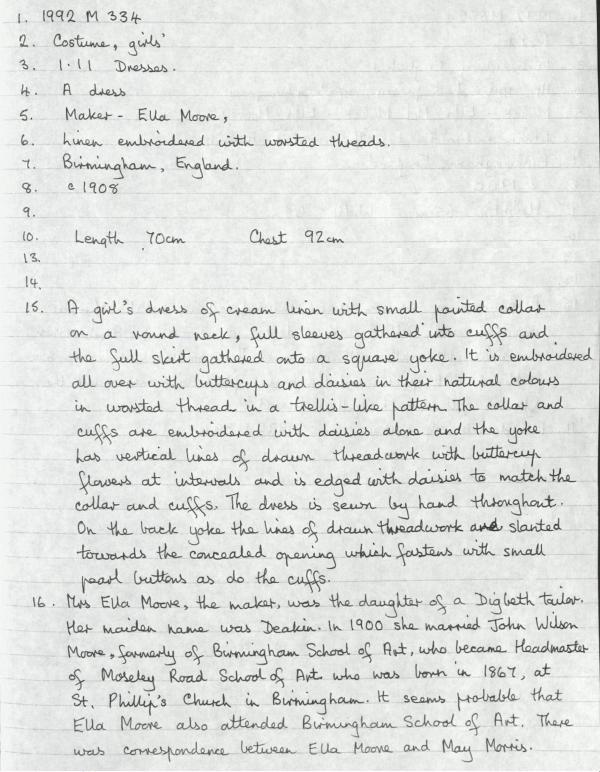 1. 1992 M 334
2. Costume, girls'
3. 1.11 Dresses.
4. A dress
5. Maker - Ella Moore,
6. Linen embroidered with worsted threads.
7. Birmingham, England.
8. c 1908
9.
10. Length 70cm Chest 92cm
13.
14.
15. A girl's dress of cream linen with small pointed collar
on a round neck, full sleeves gathered into cuffs and
the full skirt gathered onto a square yoke. It is embroidered
all over with buttercups and daisies in their natural colours
in worsted thread in a trellis-like pattern. The collar and
cuffs are embroidered with daisies alone and the yoke
has vertical lines of drawn threadwork with buttercup
flowers at intervals and is edged with daisies to match the
collar and cuffs. The dress is sewn by hand throughout.
On the back yoke the lines of drawn threadwork are slanted
towards the concealed opening which fastens with small
pearl buttons as do the cuffs.
16. Mrs Ella Moore, the maker, was the daughter of a Digbeth tailor.
Her maiden name was Deakin. In 1900 she married John Wilson
Moore, formerly of Birmingham School of Art, who became Headmaster
of Moseley Road School of Art who was born in 1867, at
St. Phillip's Church in Birmingham. It seems probable that
Ella Moore also attended Birmingham School of Art. There
was correspondence between Ella Moore and May Morris.